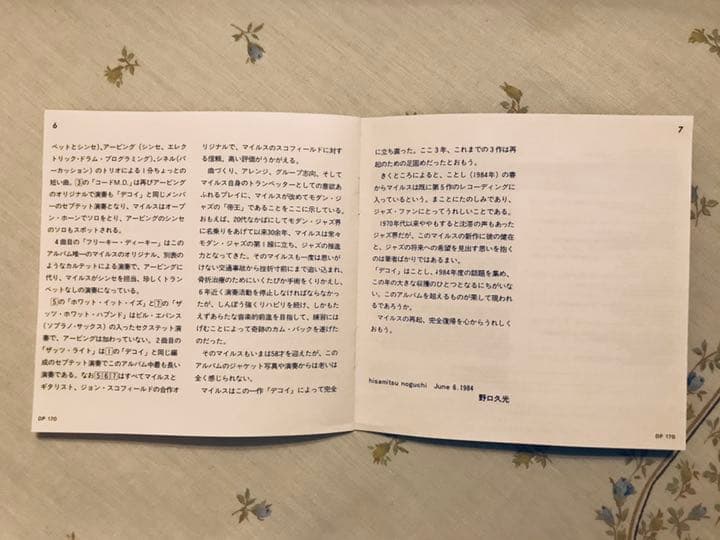 6
ペットとシンセ)、アービング (シンセ、エレク
トリック・ドラム・プログラミング)、シネル(パ
ーカッション) のトリオによる1分ちょっとの
短い曲。③の「コードM.D.」は再びアービング
のオリジナルで演奏も「デコイ」と同じメンバ
ーのセプテット演奏となり、マイルスはオープ
ン・ホーンでソロをとり、アービングのシンセ
のソロもスポットされる。
4曲目の「フリーキー・ディーキー」はこの
アルバム唯一のマイルスのオリジナル、別表の
ようなカルテットによる演奏で、アービングに
代り、マイルスがシンセを担当、珍しくトラン
ペットなしの演奏になっている。
⑤の「ホワット・イット・イズ」と⑦の「ザ
ッツ・ホワット・ハプンド」はビル・エバンス
(ソプラノ・サックス) の入ったセクステット演
奏で、アービングは加わっていない。2曲目の
「ザッツ・ライト」は①の「デコイ」と同じ編
成のセプテット演奏でこのアルバム中最も長い
演奏である。なお⑤⑥⑦はすべてマイルスと
ギタリスト、ジョン・スコフィールドの合作オ
DP 170
リジナルで、マイルスのスコフィールドに対す
る信頼、高い評価がうかがえる。
曲づくり、アレンジ、グループ志向、そして
マイルス自身のトランペッターとしての意欲あ
ふれるプレイに、マイルスが改めてモダン・ジ
ャズの「帝王」であることをここに示している。
おもえば、20代なかばにしてモダン・ジャズ界
に名乗りをあげて以来30余年、マイルスは常々
モダン・ジャズの第1線に立ち、ジャズの推進
力となってきた。そのマイルスも一度は思いが
けない交通事故から挫折寸前にまで追い込まれ、
骨折治療のためにいくたびか手術をくりかえし、
6年近く演奏活動を停止しなければならなかっ
たが、しんぼう強くリハビリを続け、しかもた
えずあらたな音楽的前進を目指して、練習には
げむことによって奇跡のカム・バックを遂げた
のだった。
そのマイルスもいまは58才を迎えたが、この
アルバムのジャケット写真や演奏からは老いは
全く感じられない。
マイルスはこの一作「デコイ」によって完全
7
に立ち戻った。ここ3年、これまでの3作は再
起のための足固めだったとおもう。
きくところによると、ことし (1984年) の春
からマイルスは既に第5作のレコーディングに
入っているという。まことにたのしみであり、
ジャズ・ファンにとってうれしいことである。
1970年代以来ややもすると沈滞の声もあった
ジャズ界だが、このマイルスの新作に彼の健在
と、ジャズの将来への希望を見出す思いを抱く
のは筆者ばかりではあるまい。
「デコイ」はことし、1984年度の話題を集め、
この年の大きな収穫のひとつとなるにちがいな
い。このアルバムを超えるものが果して現われ
るであろうか。
マイルスの再起、完全復帰を心からうれしく
おもう。
hisamitsu noguchi June 6. 1984
野口久光
DP 170